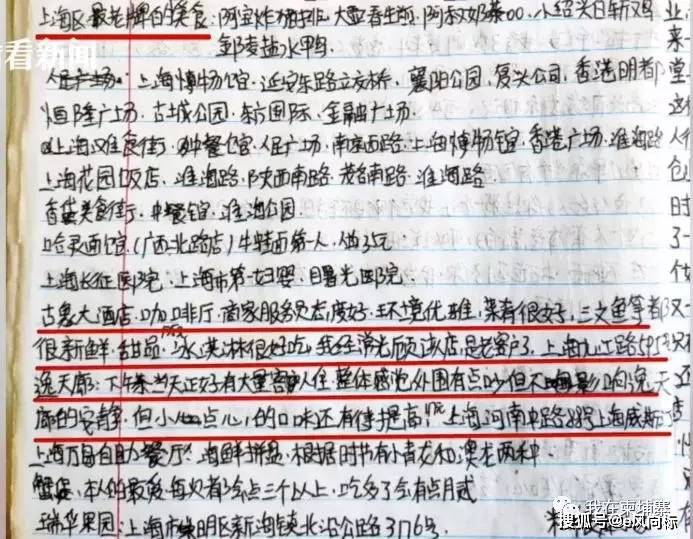 看看新闻
上海区最老牌的美食:阿宝炸猪排.大壶春生煎.阿叔奶茶00.小绍兴白斩鸡
盐水鸭
人民广场.上海博物馆.延安东路立交桥.襄阳公园.复兴公司.香港明都
恒隆广场.古城公园.东方国际.金融广场.
上海美食街.中餐馆.人民广场.南京西路.上海博物馆.香港广场.淮海路
上海花园饭店.淮海路.陕西南路.茂名南路.淮海路.
美食街.中餐馆.淮海公园.
哈灵面馆.(广西北路店)牛蛙面第一人.
上海长征医院.上海市第一妇婴.曙光医院.
古象大酒店.咖啡厅.商家服务员态度好.环境优雅.菜肴很好.三文鱼等都
很新鲜.甜品.冰淇淋很好吃.我经常光顾该店.是老客户了.上海九江路595号
逸天廊:下午茶当天正好有大量客人入住.整体感觉外围有点吵但不影响逸天
廊的安静.但小点心的口味还有待提高.上海河南中路 上海威斯
上海万豪自助餐厅:海鲜拼盘.根据时节有小青龙和澳龙两种
蟹 本人的最爱每次都会点三个以上.吃多了会有点月贰
瑞华果园:上海市崇明区新海镇北沿公路3176号.
我在柬埔寨
搜狐号@风向标